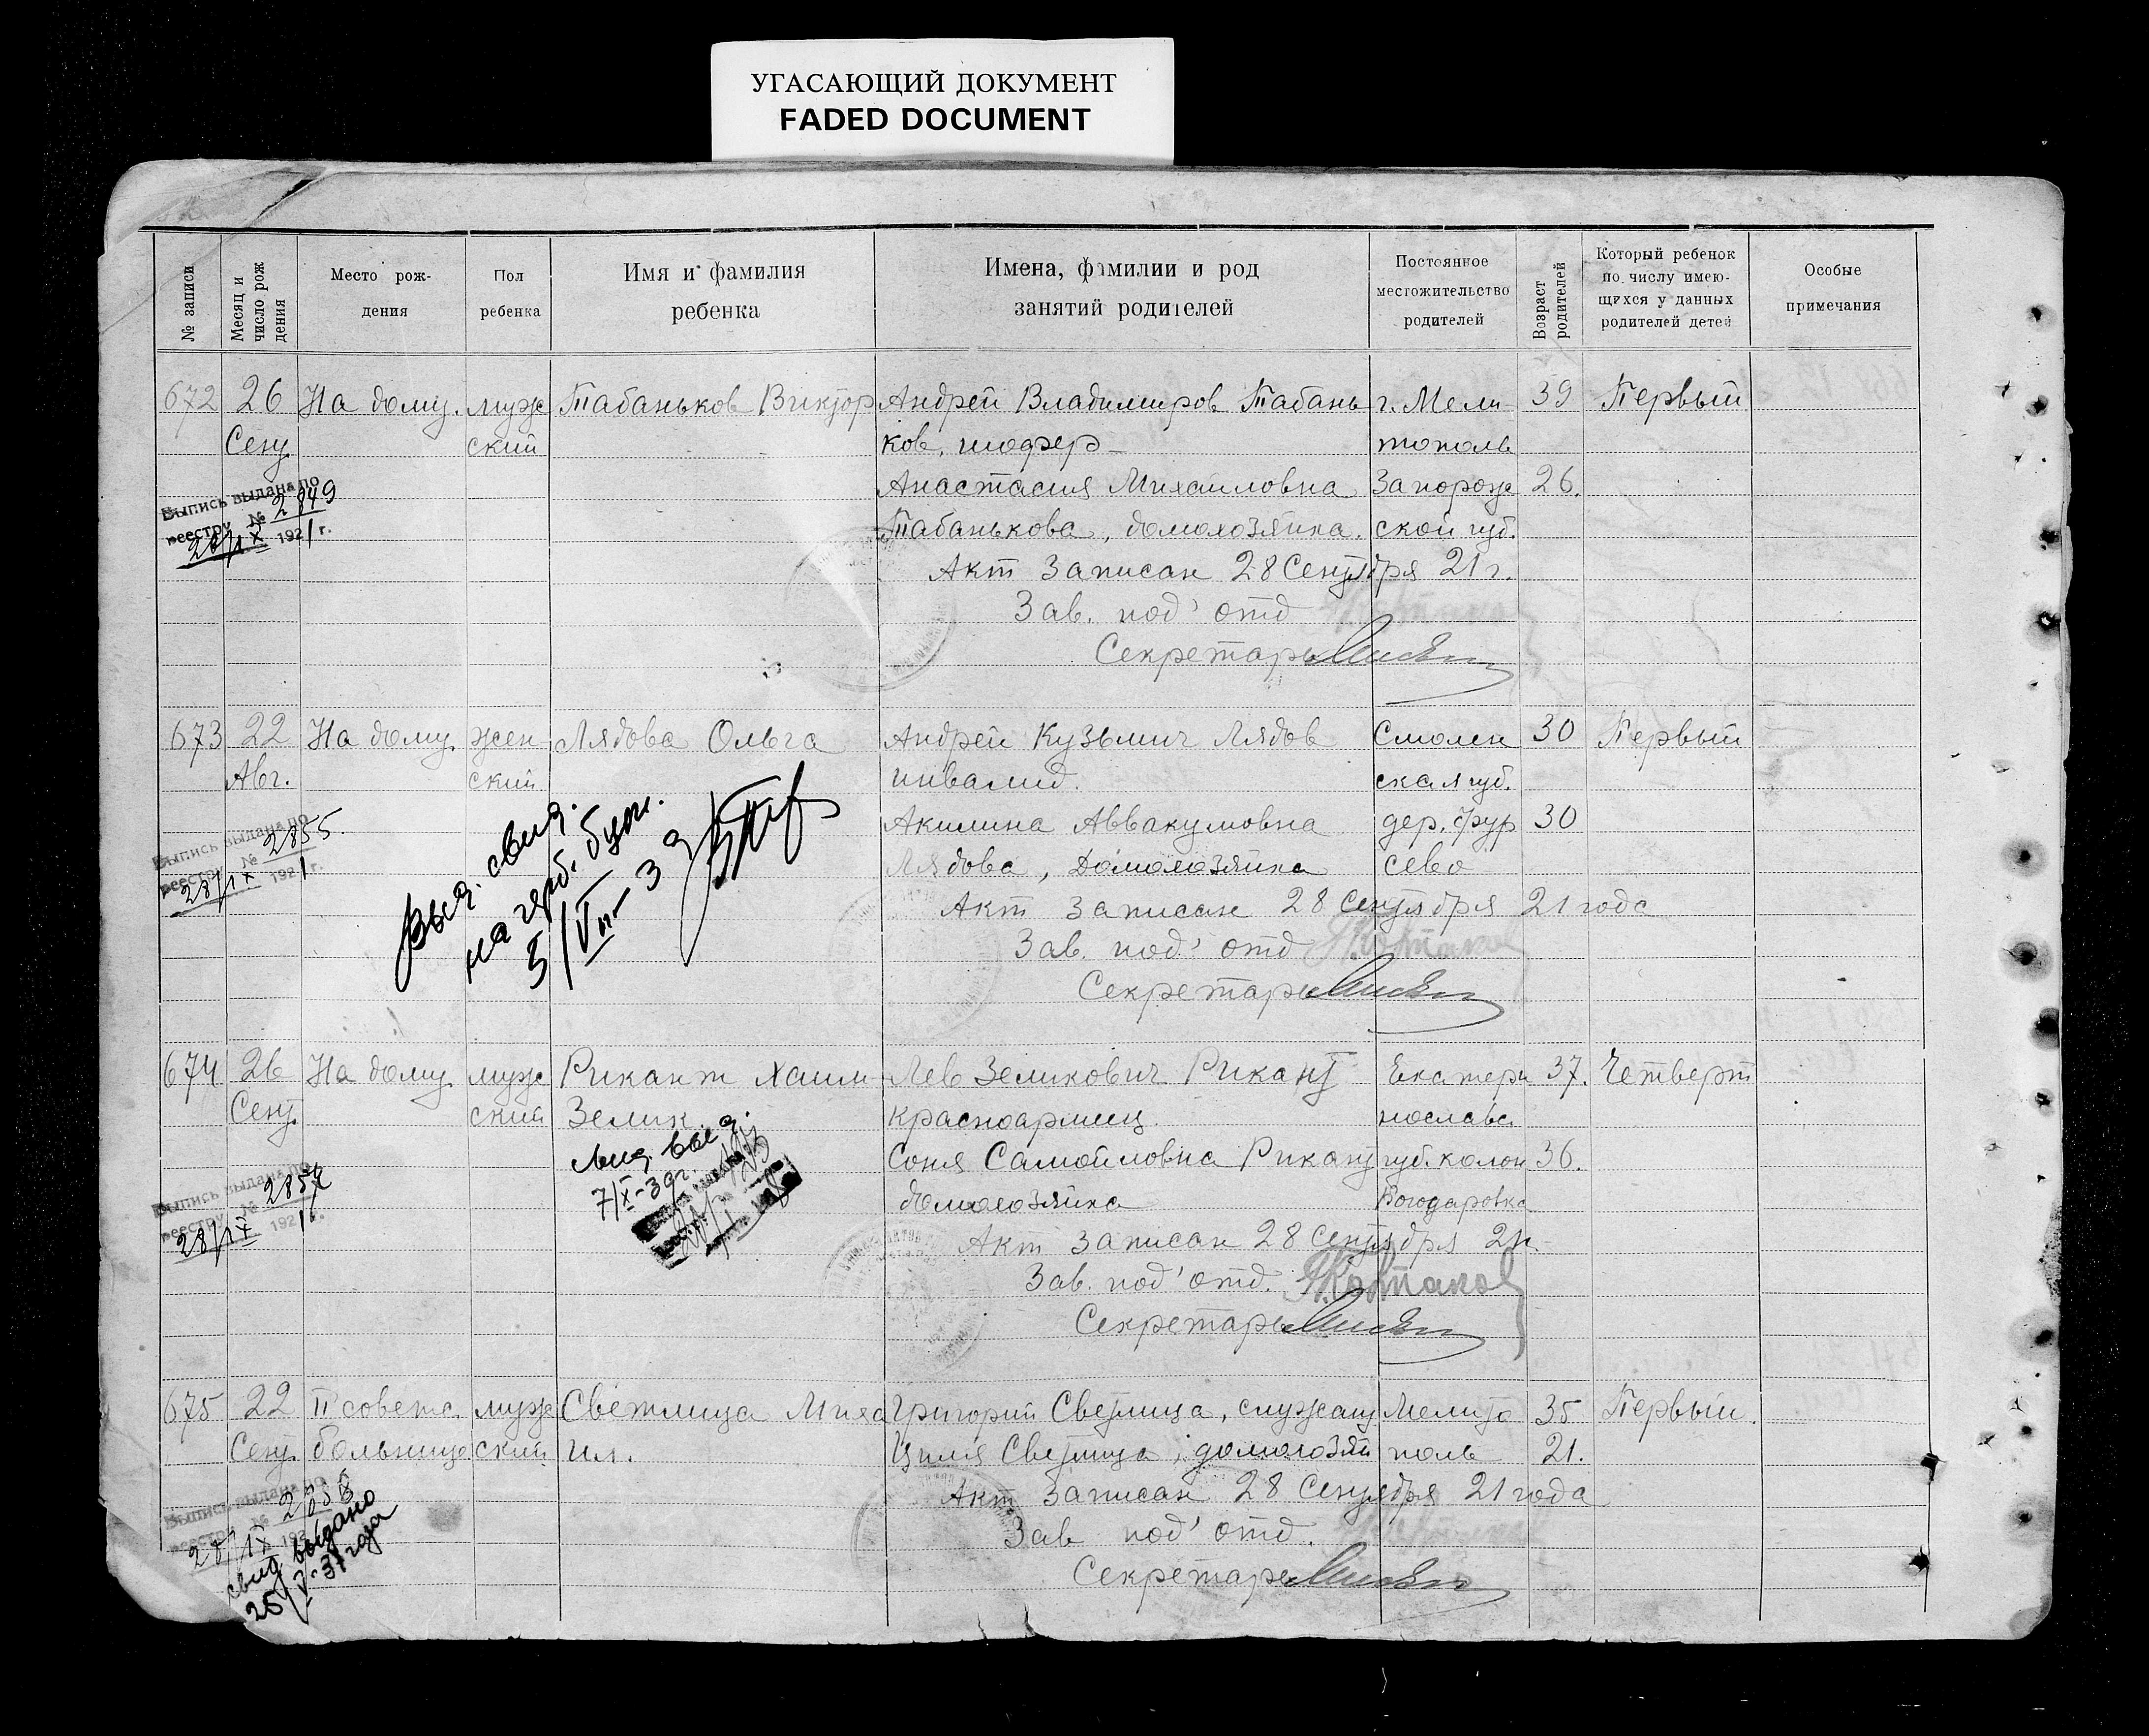 УГАСАЮЩИЙ ДОКУМЕНТ
FADED DOCUMENT
№ записи
Месяц и число рож дения
Место рож-
дения
Пол
ребенка
Имя и фамилия
ребенка
Имена, фамилии и род
занятий родителей
Постоянное
местожительство
родителей
Возраст родителей
Который ребенок
по числу имею-
щихся у данных
родителей детей
Особые
примечания
672 26 На дому. муж Табаньков Виктор Андрей Владимиров Табань г. Мели- 39 Первый
Сент. ский ков, шофер тополь
Анастасия Михайловна Запорож 26.
Табанькова, домохозяйка. ской губ.
Выпись выдана по
реестру № 2849
28/IX 1921 г.
Акт записан 28 Сентября 21 г.
Зав. под'отд
Секретарь
673 22 На дому. жен- Лядова Ольга Андрей Кузьмич Лядов Смолен 30 Первый
Авг. ский инвалид. ская губ.
Акилина Аввакумовна дер. Фур 30
Лядова, Домохозяйка сево
Выпись выдана по
реестру № 2855.
28/IX 1921 г.
Выд. свид.
на герб. бум.
5/VII-39
Акт записан 28 Сентября 21 года
Зав. под'отд
Секретарь
674 26 На дому. муж Рикант Хаим- Лев Зеликович Рикант Екатери 37. Четверт
Сент. ский Зелик. красноармеец. нославс.
Соня Самойловна Рикант губ. колон 36.
домохозяйка Богодаровка
Выпись выдана по
реестру № 2857
28/IX 1921 г.
выд.
7/IX-39г.
Акт записан 28 Сентября 21г.
Зав. под'отд.
Секретарь
675 22 П советс. муж Светлица Миха Григорий Светлица, служащ Мелито 35 Первый.
Сент. больнице ский ил. Циля Светлица, домохозяй поль 21.
Выпись выдана по
реестру №
28/IX 192
свид. выдано
25/V-37 года
Акт записан 28 Сентября 21 года
Зав под'отд.
Секретарь